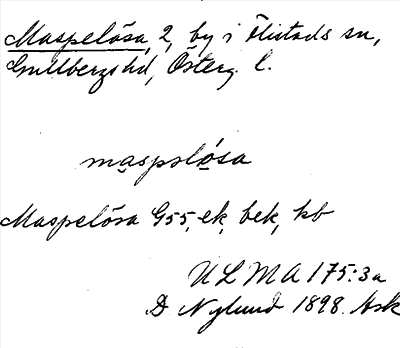 Maspelösa, 2, by i Flistads sn,
Gullbergs hd, Österg. l.
maspslósa
Maspelösa G55, ek, bek, kb
ULMA 175:3a
D Nylund 1898. Ask